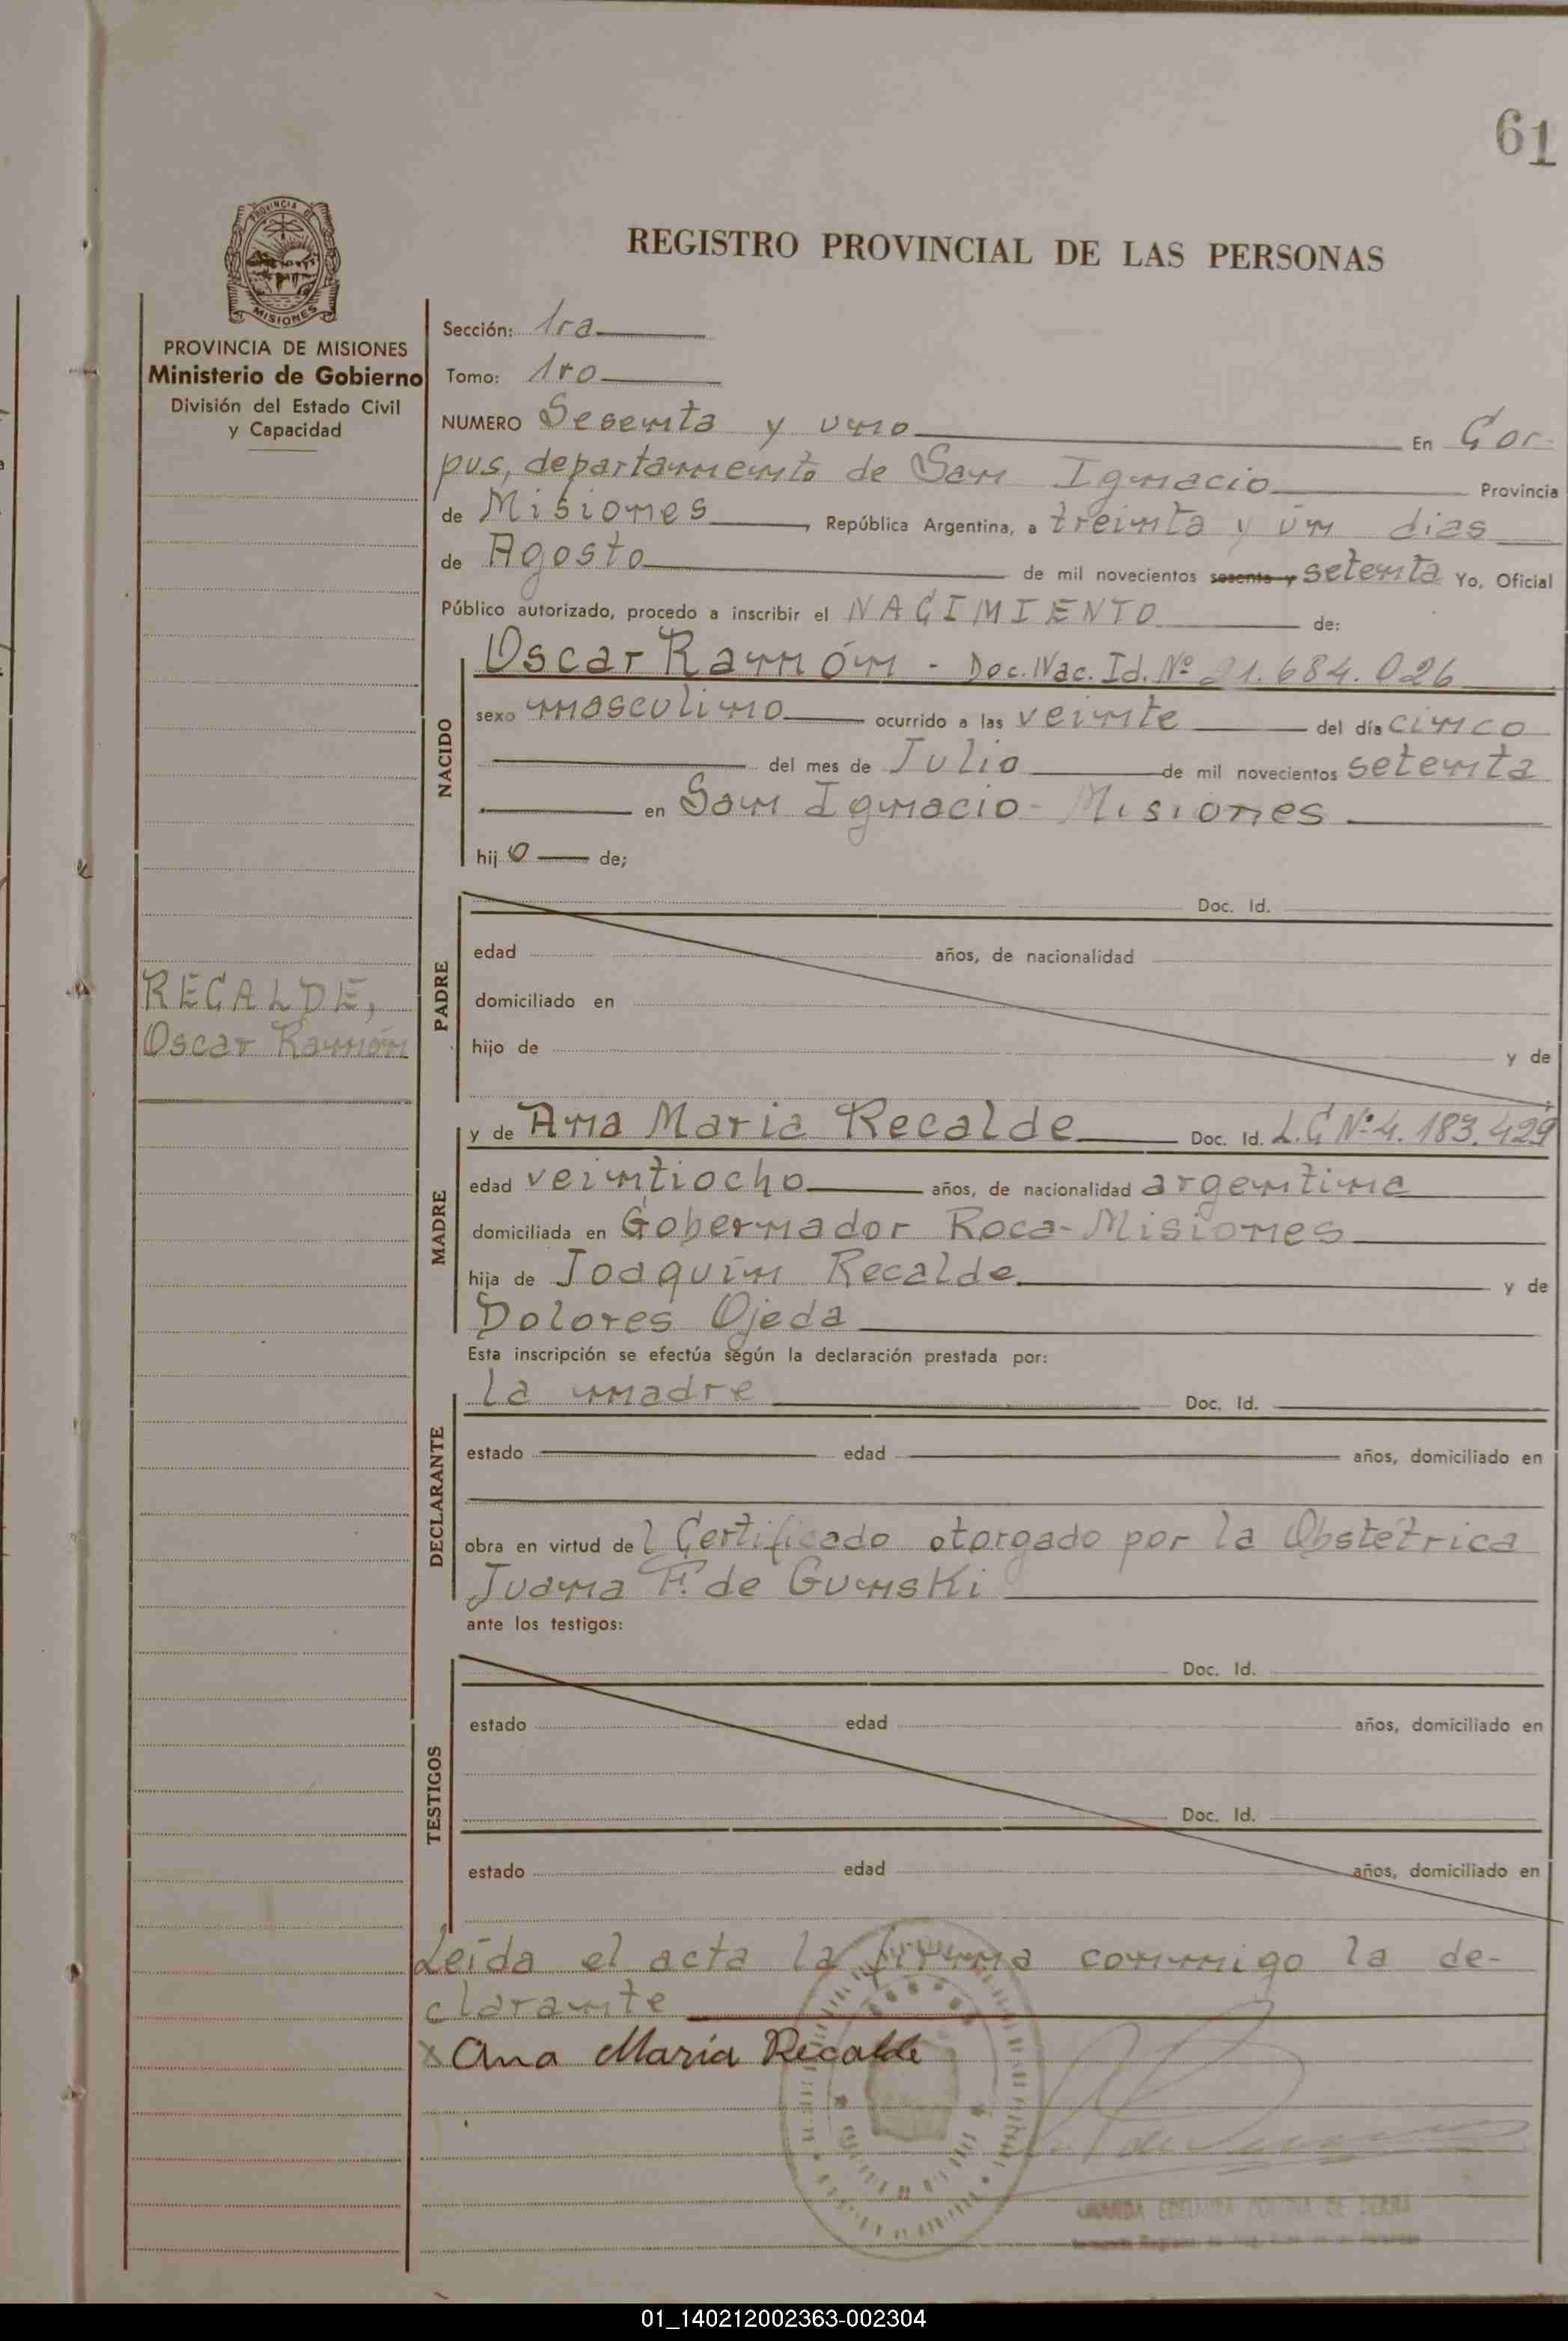 61
PROVINCIA DE
MISIONES
REGISTRO PROVINCIAL DE LAS PERSONAS
PROVINCIA DE MISIONES
Ministerio de Gobierno
División del Estado Civil
y Capacidad
RECALDE,
Oscar Ramón
Sección: 1ra
Tomo: 1ro
NUMERO Sesenta y uno En Cor-
pus, departamento de San Ignacio Provincia
de Misiones, República Argentina, a treinta y un dias
de Agosto de mil novecientos sesenta y setenta Yo, Oficial
Público autorizado, procedo a inscribir el NACIMIENTO de:
NACIDO
Oscar Ramón - Doc. Nac. Id. Nº 21.684.026
sexo masculino ocurrido a las veinte del día cinco
del mes de Julio de mil novecientos setenta
en San Ignacio - Misiones
hijo de;
PADRE
Doc. Id.
edad años, de nacionalidad
domiciliado en
hijo de y de
MADRE
y de Ana Maria Recalde Doc. Id. L.C Nº 4.183.429
edad veintiocho años, de nacionalidad argentina
domiciliada en Gobernador Roca - Misiones
hija de Joaquín Recalde y de
Dolores Ojeda
Esta inscripción se efectúa según la declaración prestada por:
DECLARANTE
la madre Doc. Id.
estado edad años, domiciliado en
obra en virtud del Certificado otorgado por la Obstétrica
Juana F. de Gunski
ante los testigos:
TESTIGOS
Doc. Id.
estado edad años, domiciliado en
Doc. Id.
estado edad años, domiciliado en
Leída el acta la firma conmigo la de-
clarante
x Ana María Recalde
01_140212002363-002304